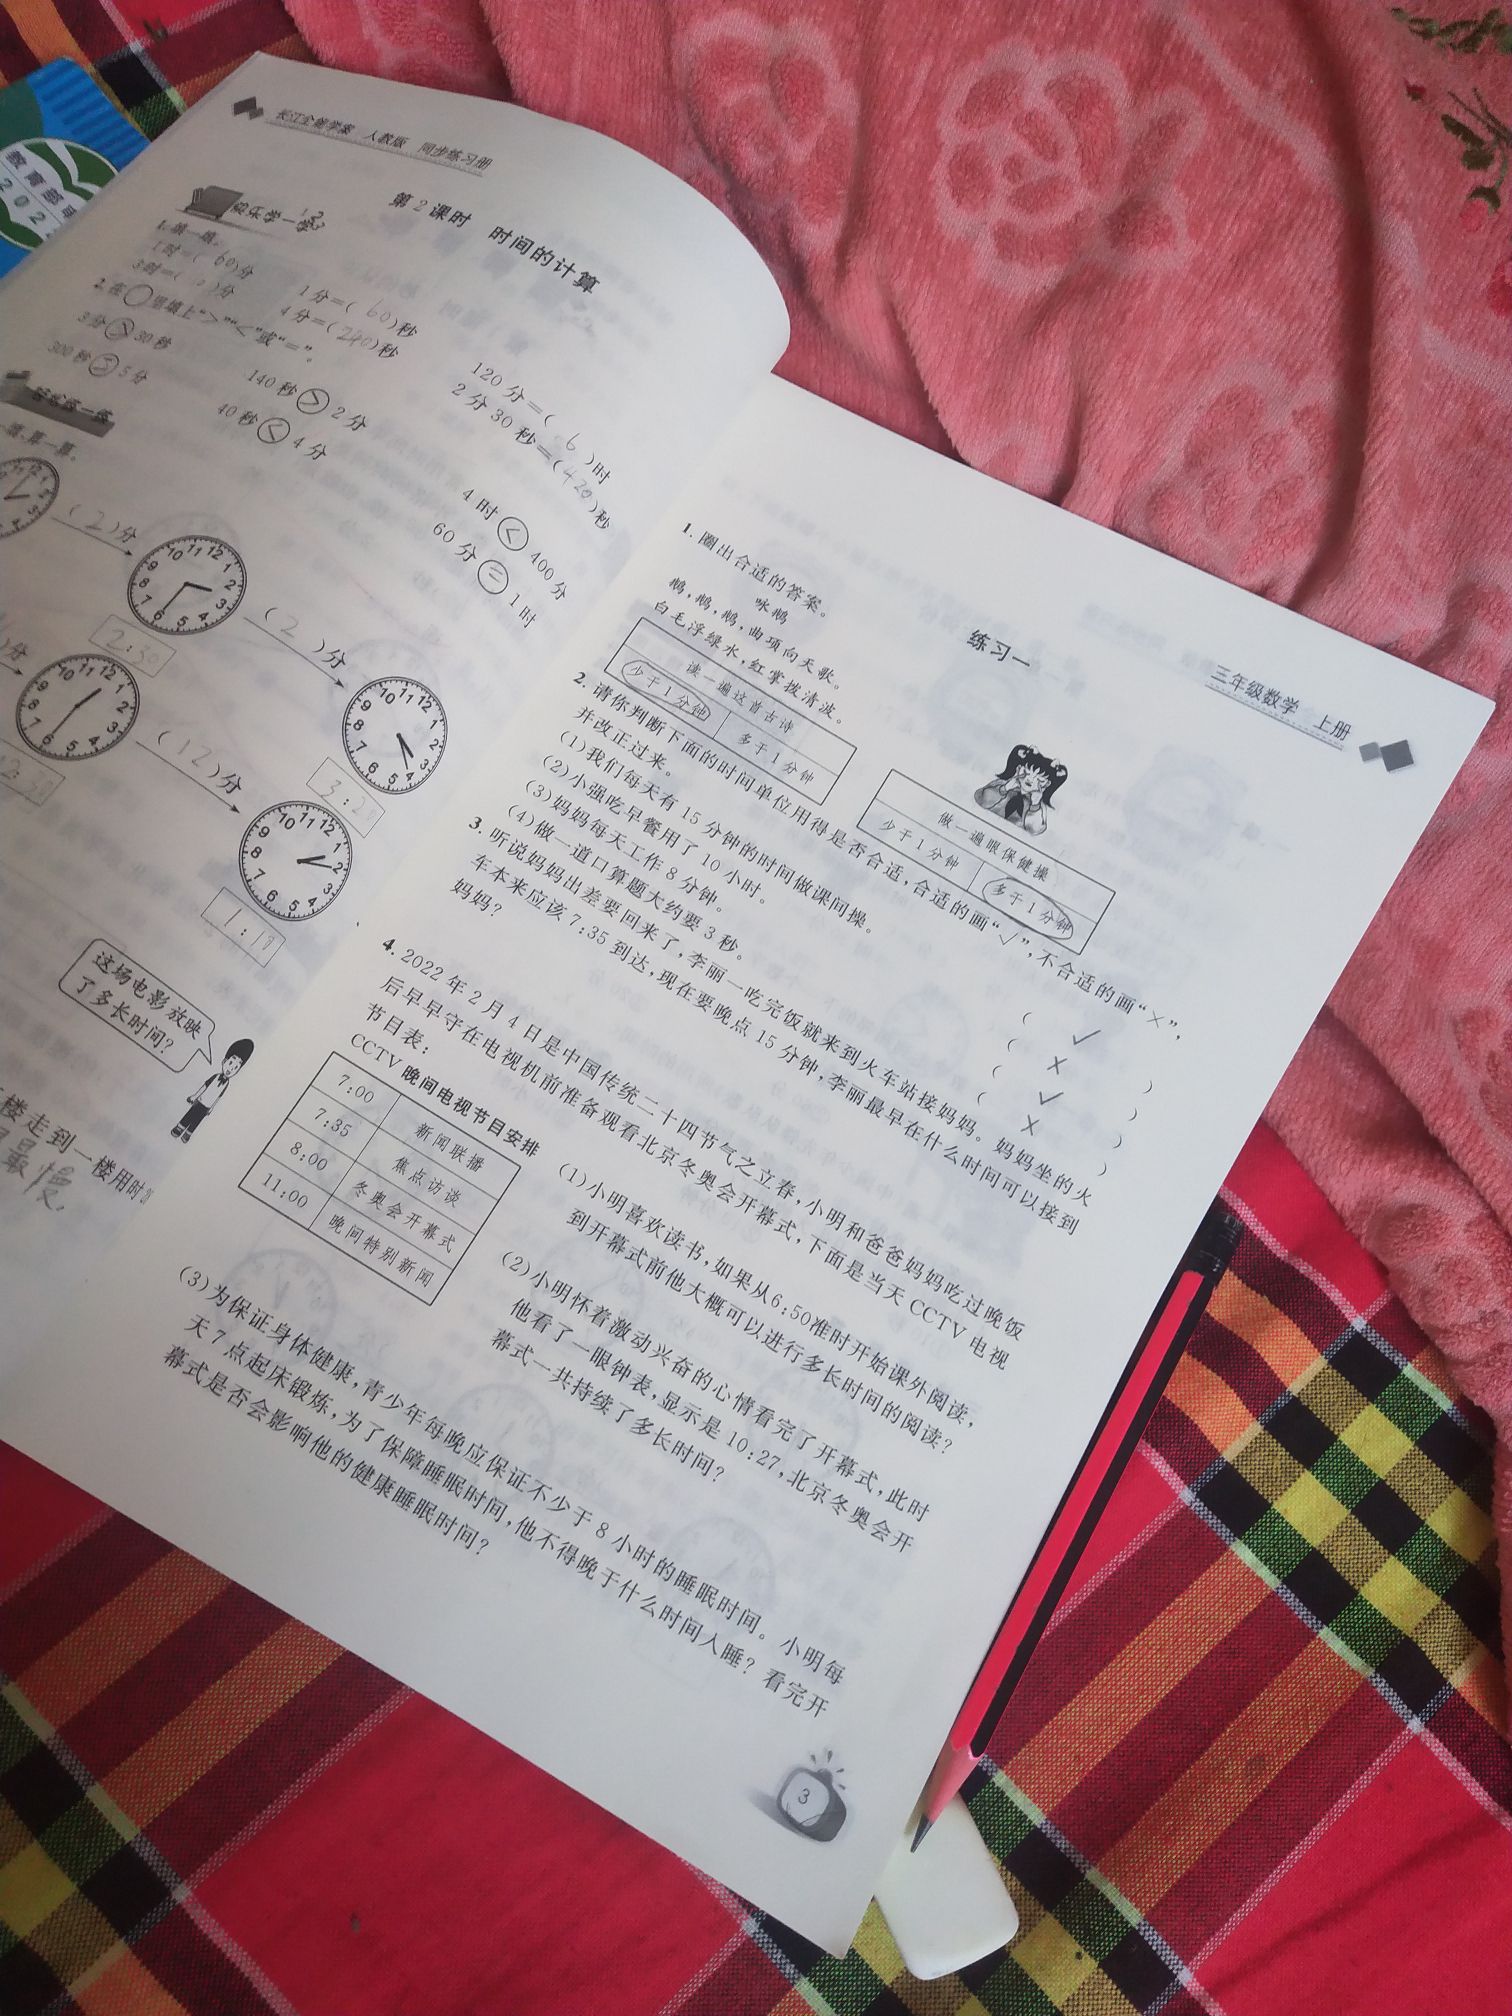 教育部
202
长江全能学案 人教版 同步练习册
第2课时 时间的计算
快乐学一学
1.填一填。
1时=(60)分
1分=(60)秒
120分=(6)时
3时=( )分
4分=(240)秒
2分30秒=(420)秒
2.在○里填上“>”“<”或“=”。
3分>30秒
140秒>2分
4时<400分
300秒>5分
40秒<4分
60分=1时
(2)分
2:30
(2)分
)分
(12)分
这场电影放映
了多长时间?
楼走到一楼用时
最慢.
三年级数学 上册
练习一
1.圈出合适的答案。
咏鹅
鹅,鹅,鹅,曲项向天歌。
白毛浮绿水,红掌拨清波。
读一遍这首古诗
少于1分钟 多于1分钟
做一遍眼保健操
少于1分钟 多于1分钟
2.请你判断下面的时间单位用得是否合适,合适的画“√”,不合适的画“×”,
并改正过来。
(1)我们每天有15分钟的时间做课间操。 ( √ )
(2)小强吃早餐用了10小时。 ( × )
(3)妈妈每天工作8分钟。 ( √ )
(4)做一道口算题大约要3秒。 ( × )
3.听说妈妈出差要回来了,李丽一吃完饭就来到火车站接妈妈。妈妈坐的火
车本来应该7:35到达,现在要晚点15分钟,李丽最早在什么时间可以接到
妈妈?
4.2022年2月4日是中国传统二十四节气之立春,小明和爸爸妈妈吃过晚饭
后早早守在电视机前准备观看北京冬奥会开幕式,下面是当天CCTV电视
节目表:
CCTV晚间电视节目安排
7:00 新闻联播
7:35 焦点访谈
8:00 冬奥会开幕式
11:00 晚间特别新闻
(1)小明喜欢读书,如果从6:50准时开始课外阅读,
到开幕式前他大概可以进行多长时间的阅读?
(2)小明怀着激动兴奋的心情看完了开幕式,此时
他看了一眼钟表,显示是10:27,北京冬奥会开
幕式一共持续了多长时间?
(3)为保证身体健康,青少年每晚应保证不少于8小时的睡眠时间。小明每
天7点起床锻炼,为了保障睡眠时间,他不得晚于什么时间入睡?看完开
幕式是否会影响他的健康睡眠时间?
3